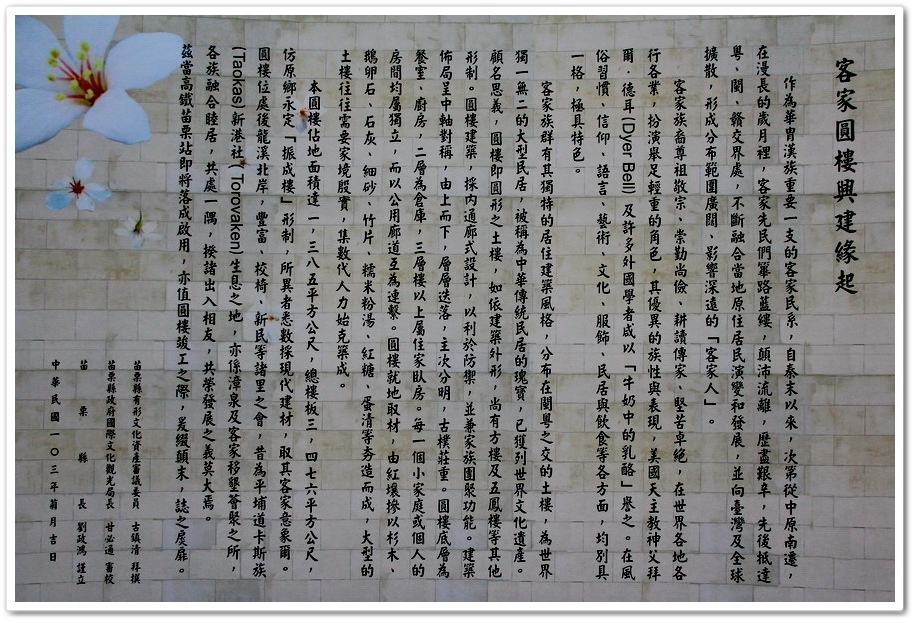 客家圓樓興建緣起
作為華胄漢族重要一支的客家民系，自秦末以來，次第從中原南遷，
在漫長的歲月裡，客家先民們篳路藍縷，顛沛流離，歷盡艱辛，先後抵達
粵、閩、贛交界處，不斷融合當地原住居民演變和發展，並向臺灣及全球
擴散，形成分布範圍廣闊、影響深遠的「客家人」。
客家族裔尊祖敬宗、崇勤尚儉、耕讀傳家、堅苦卓絕，在世界各地各
行各業，扮演舉足輕重的角色，其優異的族性與表現，美國天主教神父拜
爾．德耳(Dyer Bell) 及許多外國學者咸以「牛奶中的乳酪」譽之。在風
俗習慣、信仰、語言、藝術、文化、服飾、民居與飲食等各方面，均別具
一格，極具特色。
客家族群有其獨特的居住建築風格，分布在閩粵之交的土樓，為世界
獨一無二的大型民居，被稱為中華傳統民居的瑰寶，已獲列世界文化遺產。
顧名思義，圓樓即圓形之土樓，如依建築外形，尚有方樓及五鳳樓等其他
形制。圓樓建築，採內通廊式設計，以利於防禦，並兼家族團聚功能。建築
佈局呈中軸對稱，由上而下，層層迭落，主次分明，古樸莊重。圓樓底層為
餐室、廚房，二層為倉庫，三層樓以上屬住家臥房。每一個小家庭或個人的
房間均屬獨立，而以公用廊道互為連繫。圓樓就地取材，由紅壤摻以杉木、
鵝卵石、石灰、細砂、竹片、糯米粉湯、紅糖、蛋清等夯造而成，大型的
土樓往往需要家境殷實，集數代人力始克築成。
本圓樓佔地面積達一，三八五平方公尺，總樓板三，四七六平方公尺，
仿原鄉永定「振成樓」形制，所異者悉數採現代建材，取其客家意象爾。
圓樓位處後龍溪北岸，豐富、校椅、新民等諸里之會，昔為平埔道卡斯族
(Taokas)新港社( Torovaken)生息之地，亦係漳泉及客家移墾薈聚之所，
各族融合睦居，共處一隅，揆諸出入相友，共榮發展之義莫大焉。
茲當高鐵苗栗站即將落成啟用，亦值圓樓竣工之際，爰綴顛末，誌之扆扉。
苗栗縣有形文化資產審議委員　古鎮清　拜撰
苗栗縣政府國際文化觀光局長　甘必通　審校
苗栗縣長　劉政鴻　謹立
中華民國一○三年菊月吉日